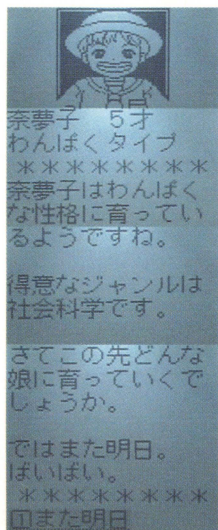 奈夢子　5才
わんぱくタイプ
＊＊＊＊＊＊＊＊
奈夢子はわんぱく
な性格に育ってい
るようですね。
得意なジャンルは
社会科学です。
さてこの先どんな
娘に育っていくで
しょうか。
ではまた明日。
ばいばい。
＊＊＊＊＊＊＊＊
また明日